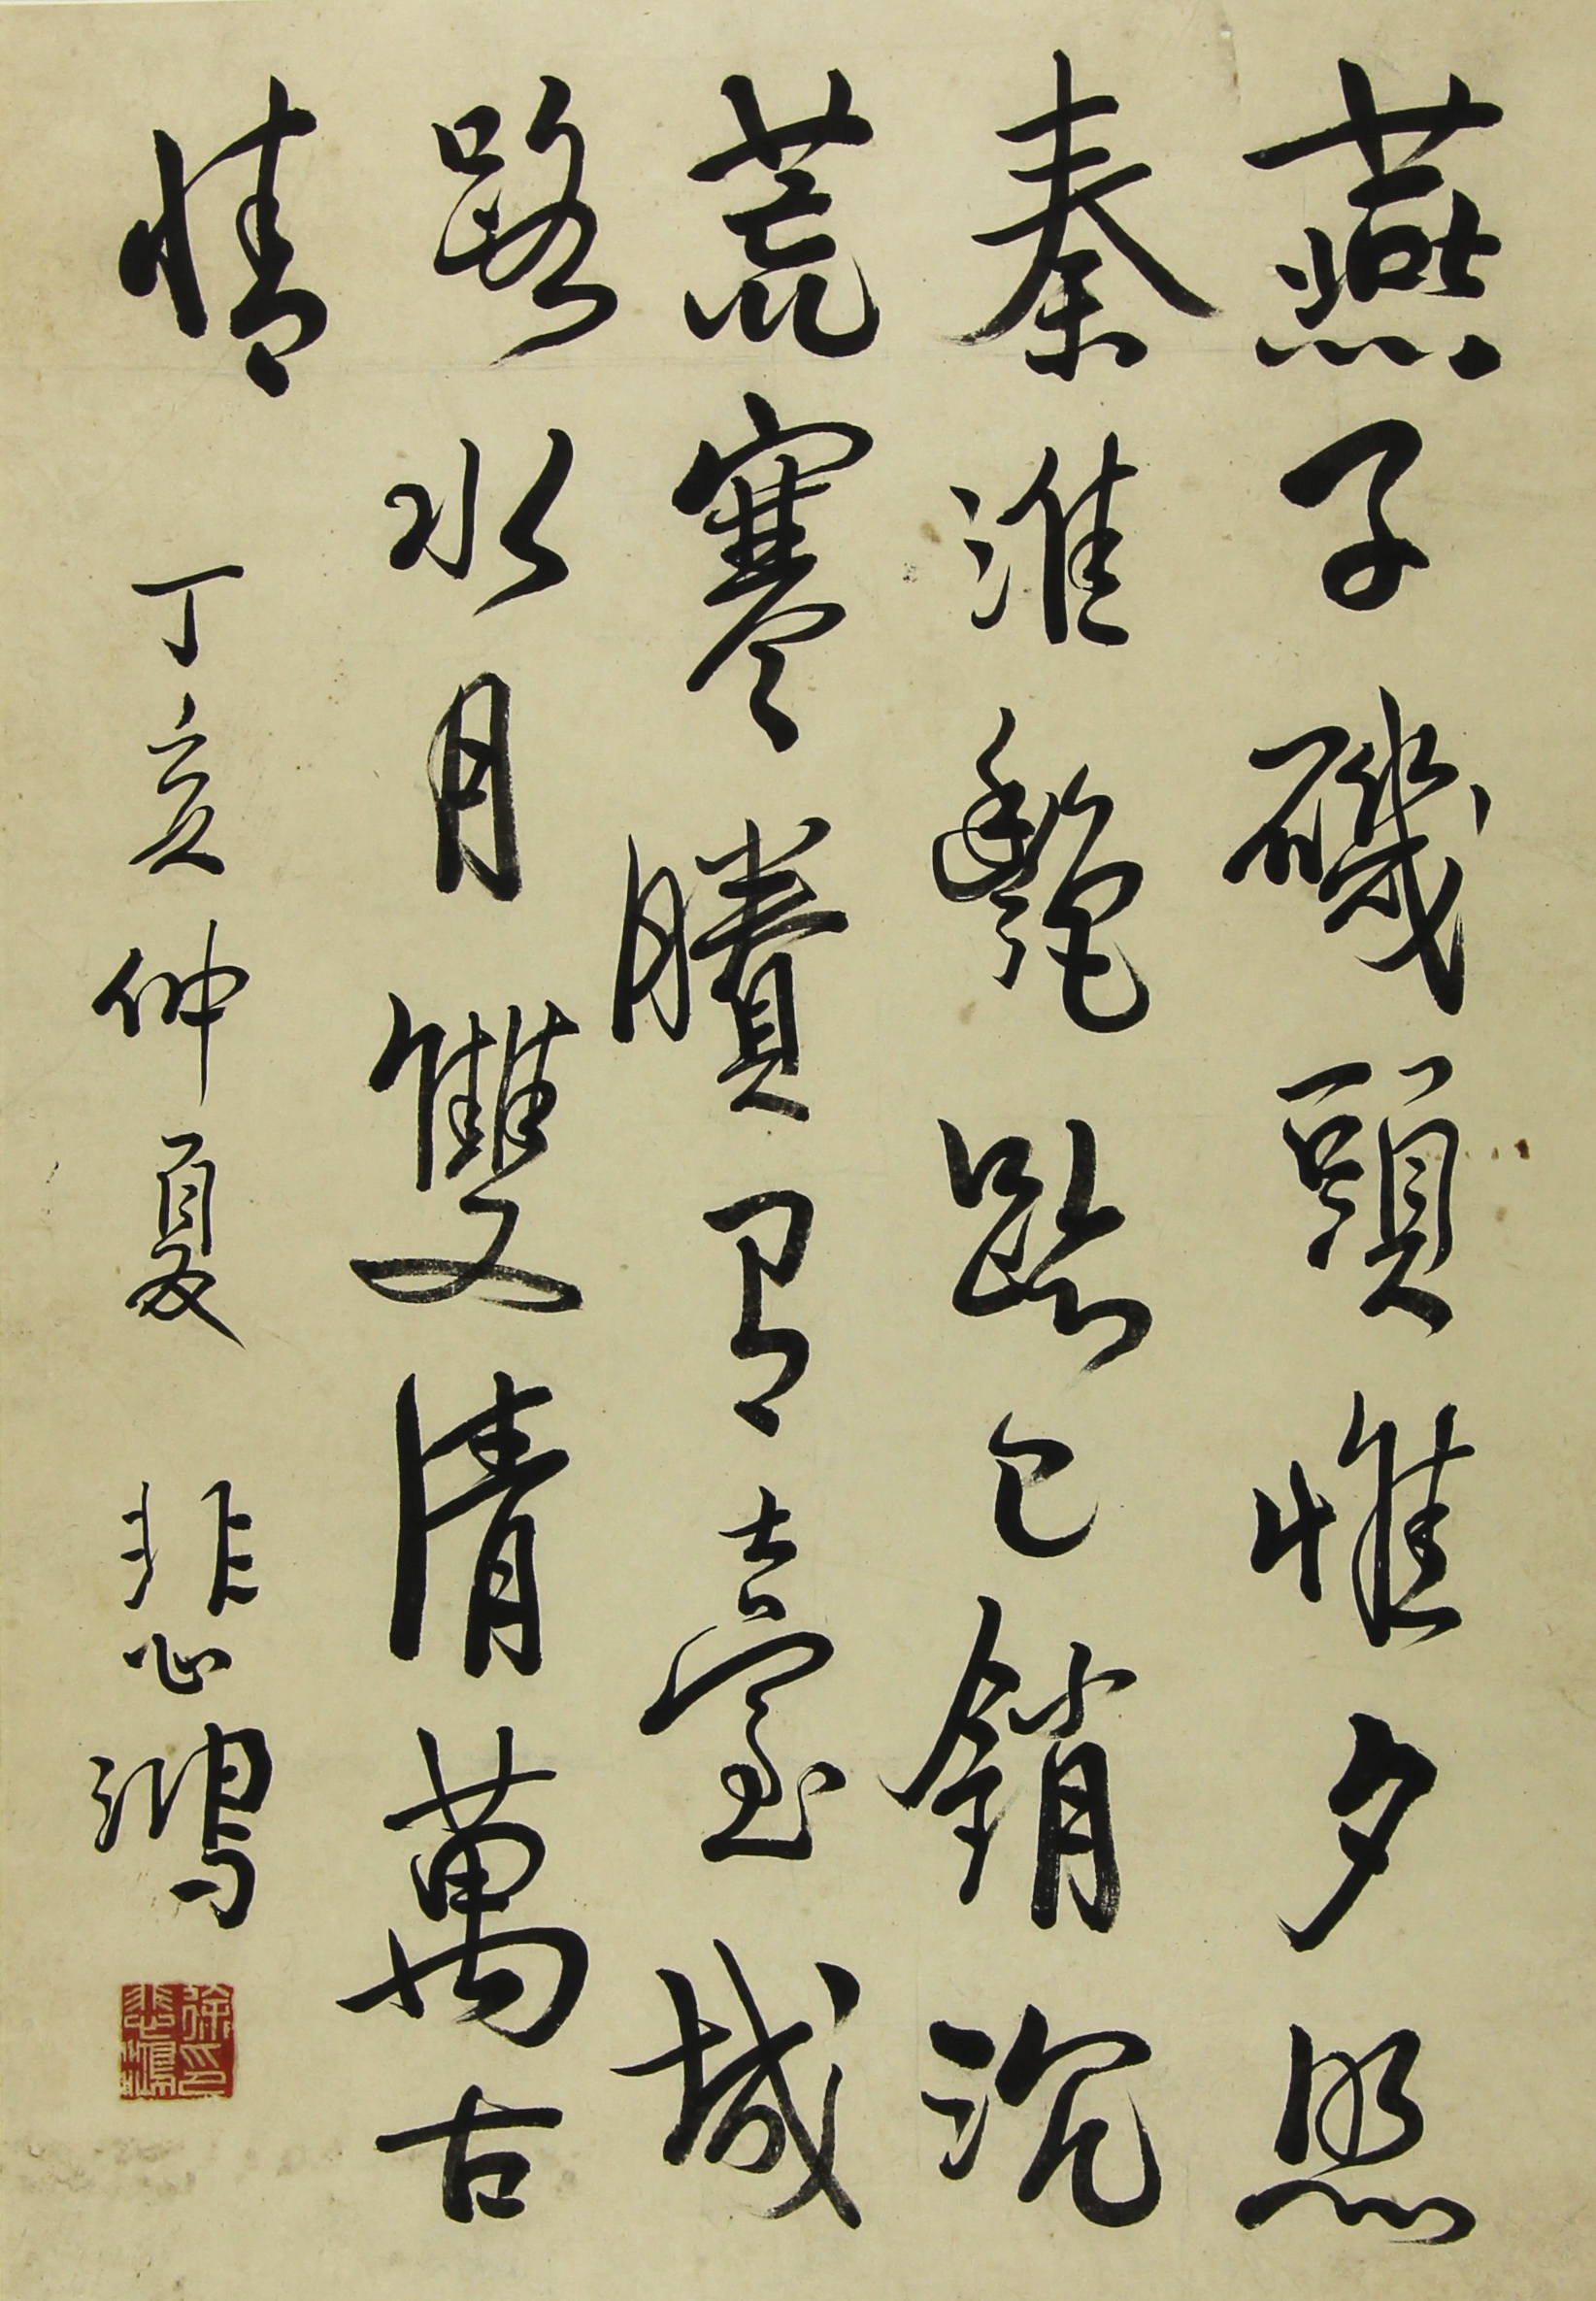 燕子磯頭惟夕照
秦淮艷跡已銷沉
荒寒賸有臺城
路水月雙清萬古
情 丁亥仲夏 悲鴻
徐印悲鴻